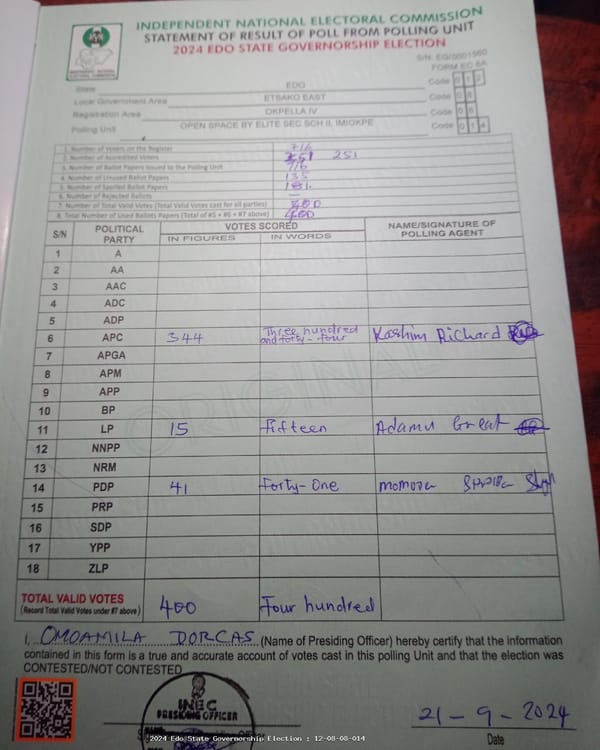 INDEPENDENT NATIONAL ELECTORAL COMMISSION
STATEMENT OF RESULT OF POLL FROM POLLING UNIT
2024 EDO STATE GOVERNORSHIP ELECTION
FORM EC 8A
State EDO Code 0 1 2
Local Government Area ETSAKO EAST Code 0 8
Registration Area OKPELLA IV Code 0 8
Polling Unit OPEN SPACE BY ELITE SEC SCH II, IMIOKPE Code 0 1 4
1. Number of Voters on the Register 716
2. Number of Accredited Voters 251
3. Number of Ballot Papers Issued to the Polling Unit
4. Number of Unused Ballot Papers 135
5. Number of Spoiled Ballot Papers
6. Number of Rejected Ballots —
7. Number of Total Valid Votes (Total Valid Votes cast for all parties) 400
8. Total Number of Used Ballots Papers (Total of #5 + #6 + #7 above) 400
S/N POLITICAL PARTY VOTES SCORED NAME/SIGNATURE OF POLLING AGENT
IN FIGURES IN WORDS
1 A
2 AA
3 AAC
4 ADC
5 ADP
6 APC 344 Three hundred and forty-four Kashim Richard
7 APGA
8 APM
9 APP
10 BP
11 LP 15 Fifteen Adamu Great
12 NNPP
13 NRM
14 PDP 41 Forty-One
15 PRP
16 SDP
17 YPP
18 ZLP
TOTAL VALID VOTES 400 Four hundred
(Record Total Valid Votes under #7 above)
I, OMOAMILA DORCAS (Name of Presiding Officer) hereby certify that the information
contained in this form is a true and accurate account of votes cast in this polling Unit and that the election was
CONTESTED/NOT CONTESTED
INEC
PRESIDING OFFICER
21-9-2024
Date
2024 Edo State Governorship Election : 12-08-08-014
ORIGINAL